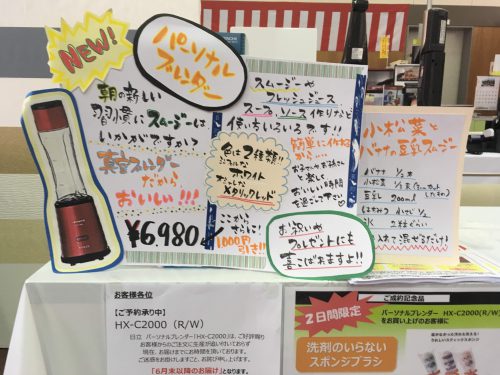 NEW!
パーソナル
ブレンダー
朝の新しい
習慣にスムージーは
いかがですか?
真空ブレンダー
だから、
おいしい!!!
¥6,980
スムージーや
フレッシュジュース
スープ、ソース作りなど
使い方いろいろです!!
色は2種類!!
ホワイト
メタリックレッド
簡単に作れる
から、
お子さんやお孫さん
と楽しく
おいしい時間
を過ごして下さい
ここから
さらに!
1,000円
引き!!
お祝いや
プレゼントにも
喜ばれますよ!!
小松菜と
バナナの豆乳スムージー
バナナ 1/2本
小松菜
豆乳 200ml
はちみつ 小さじ 1/2
氷 2粒ぐらい
入れて混ぜるだけ!
お客様各位
【ご予約承り中】
HX-C2000(R/W)
日立 パーソナルブレンダー「HX-C2000」は、ご好評賜り
お客様からのご注文に生産が追い付いておらず
現在、お届けまでにお時間を頂いております。
ご迷惑をお掛けしますと、お詫び申し上げます。
「6月末以降のお届け」となります。
ご成約記念品
2日間限定
パーソナルブレンダー HX-C2000(R/W)
をお買い上げのお客様に
洗剤のいらない
スポンジブラシ